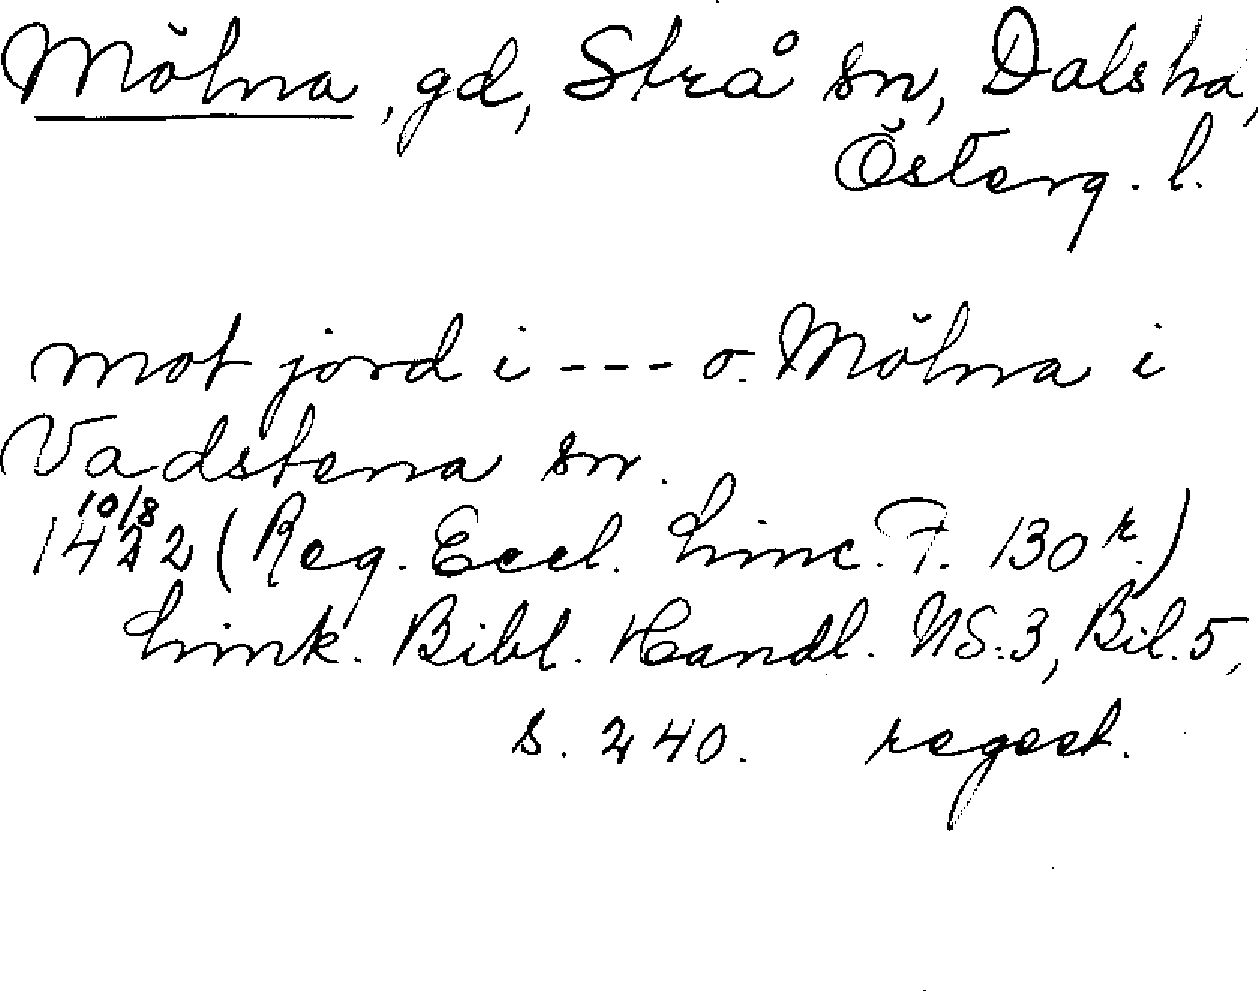 Mölna, gd, Strå sn, Dalshd,
Österg. l.
mot jord i --- o. Mölna i
Vadstena sn.
10/8
1422 (Reg. Eccl. Linc. F. 130 r.)
Link. Bibl. Handl. NS.3, Bil.5,
s. 240. regest.